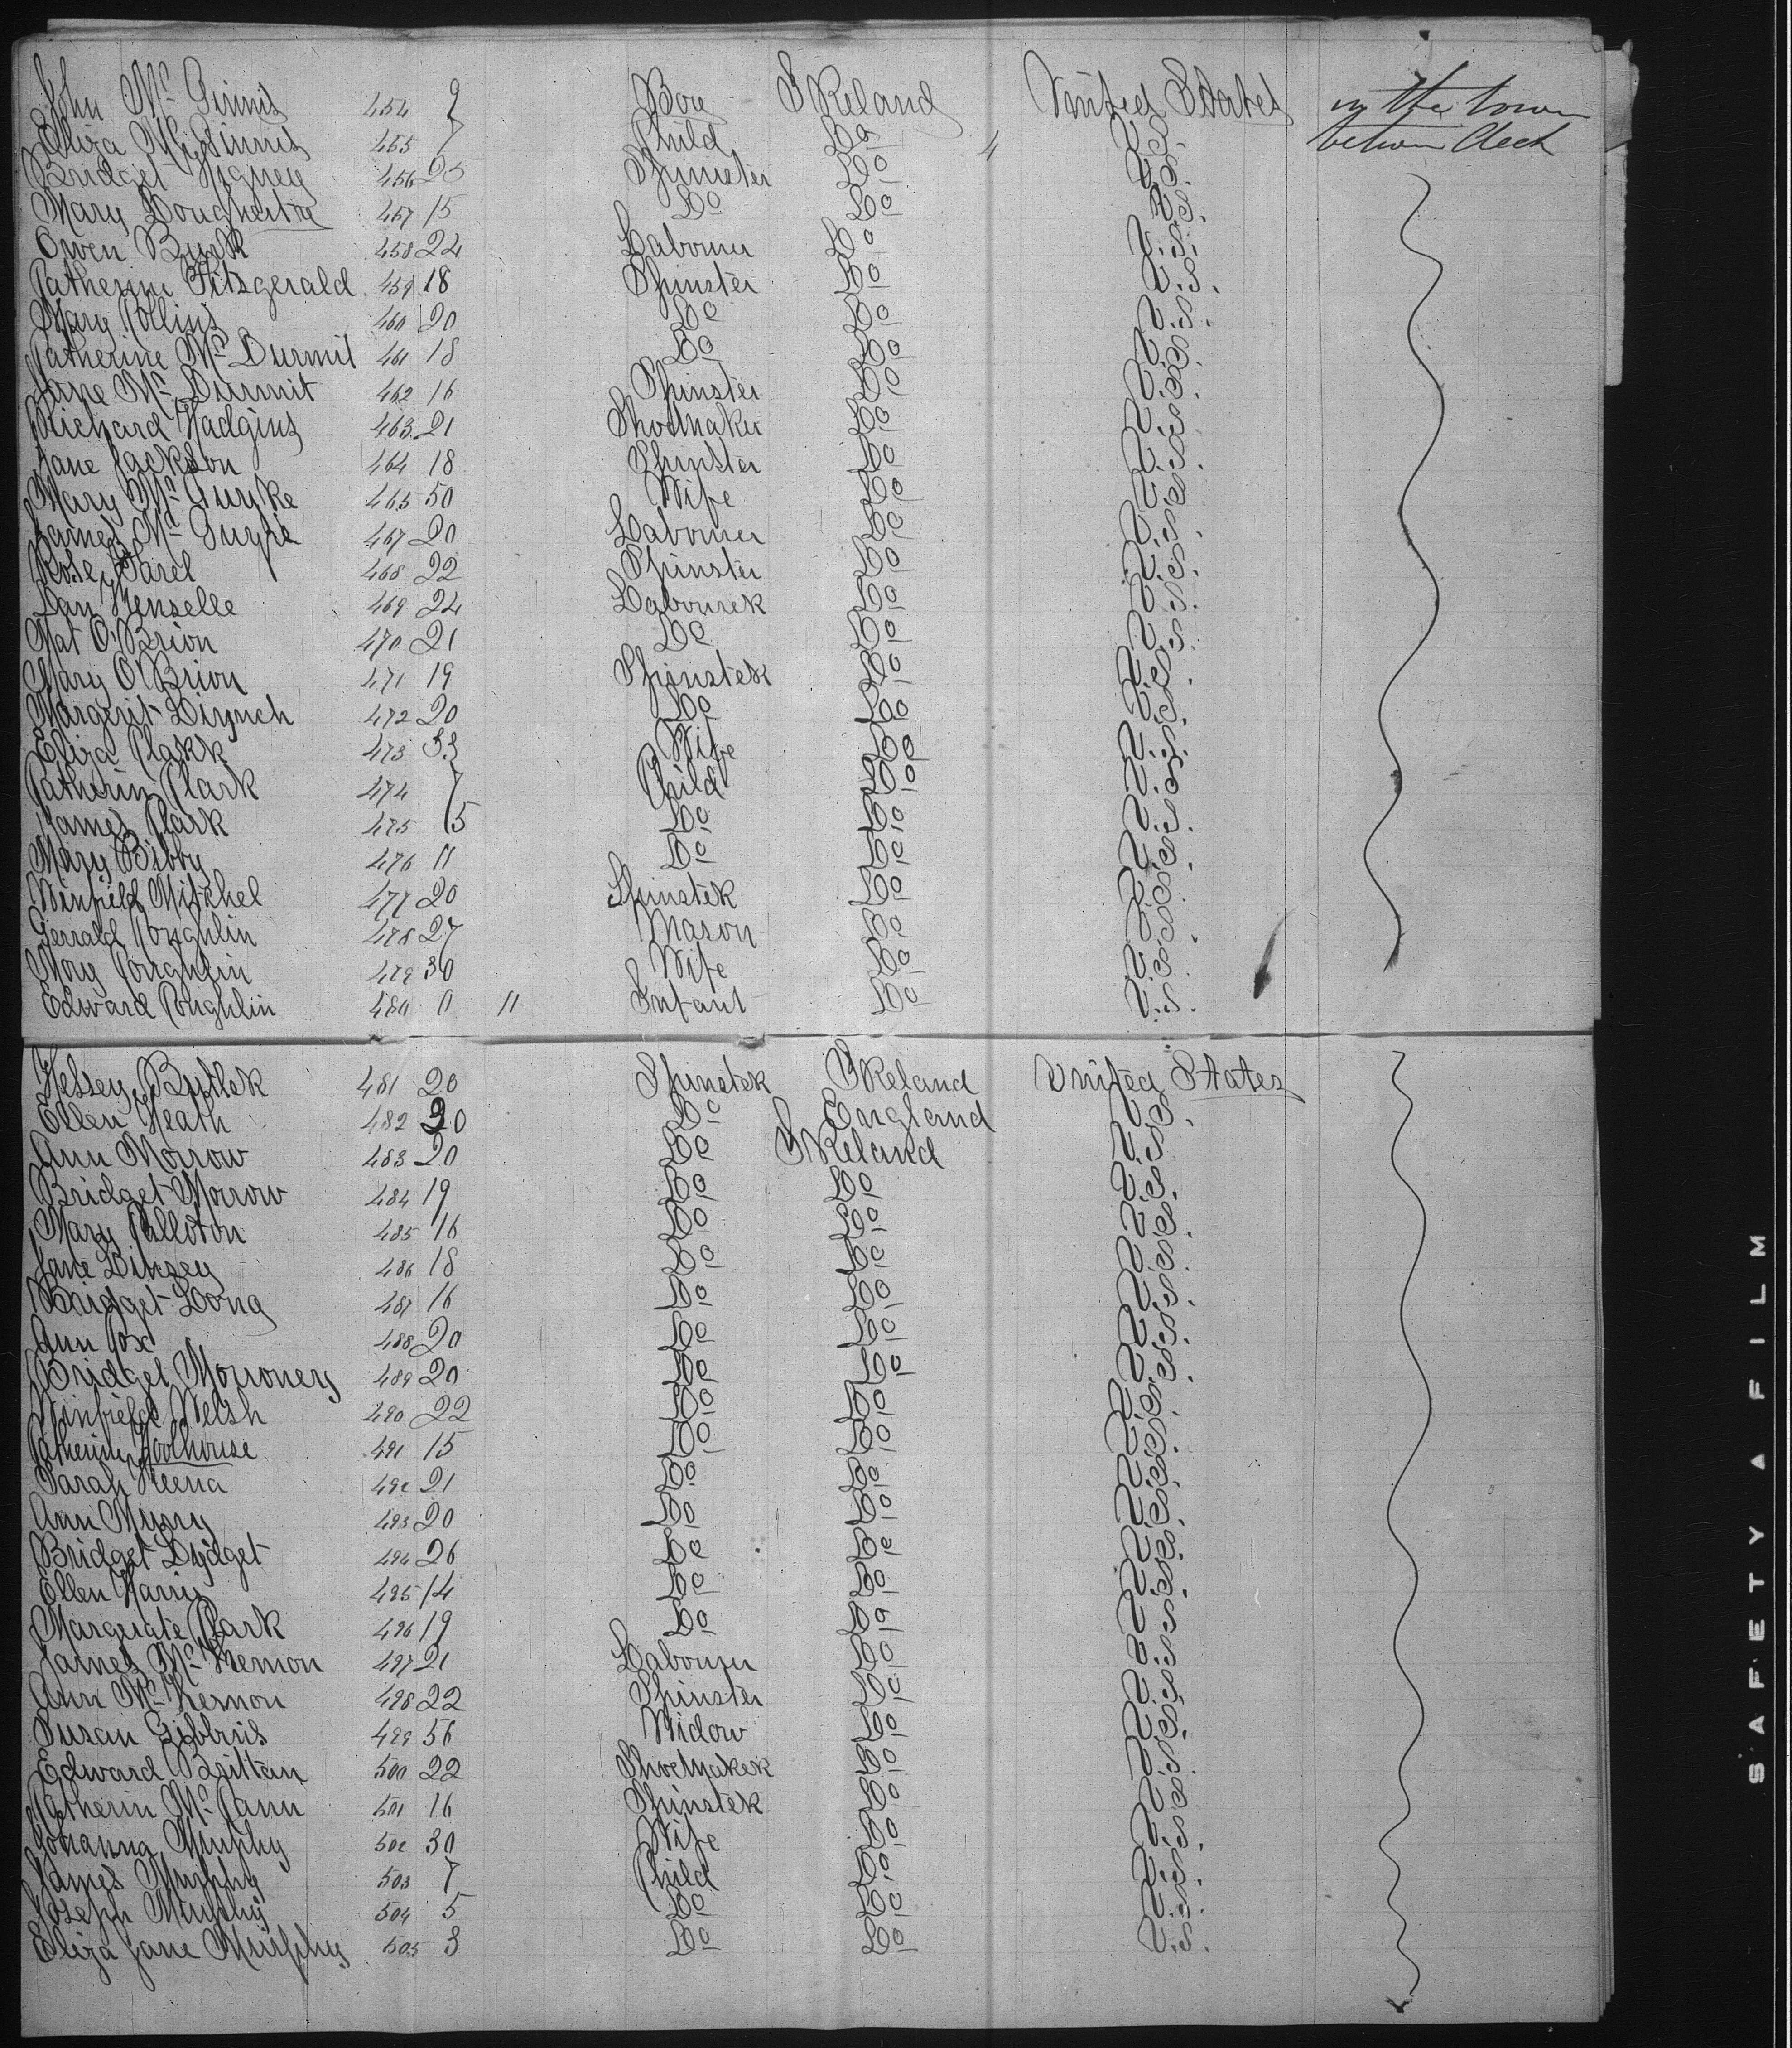 John Mc Ginnis 454 9 Boy IReland United States in the lower
Eliza Mc Ginnis 455 7 Child Do U.S. between deck
Bridget Higney 456 25 Spinster Do U.S.
Mary Dougherty 457 15 Do Do U.S.
Owen Burk 458 24 Labourer Do U.S.
Catherine Fitzgerald 459 18 Spinster Do U.S.
Mary Collins 460 20 Do Do U.S.
Catherine Mc Durmit 461 18 Do Do U.S.
Jane Mc Durmit 462 16 Spinster Do U.S.
Richard Hadgins 463 21 Shoemaker Do U.S.
Jane Jackson 464 18 Spinster Do U.S.
Mary Mc 465 50 Wife Do U.S.
James Mc Guyre 467 20 Labourer Do U.S.
Rose Farel 468 22 Spinster Do U.S.
Dan Henselle 469 24 Labourer Do U.S.
Pat O'Brion 470 21 Do Do U.S.
Mary O'Brion 471 19 Spinster Do U.S.
Margerit Lirynch 472 20 Do Do U.S.
Eliza Clark 473 33 Wife Do U.S.
Catherin Clark 474 7 Child Do U.S.
James Clark 475 5 Do Do U.S.
Mary Bibby 476 11 Do Do U.S.
Winfield Mitchel 477 20 Spinster Do U.S.
Gerrald Coughlin 478 27 Mason Do U.S.
Mary Coughlin 479 30 Wife Do U.S.
Edward Coughlin 480 0 11 Infant Do U.S.
Helsey Butler 481 20 Spinster IReland United States
Ellen Heath 482 20 Do England U.S.
Ann Morrow 483 20 Do IReland U.S.
Bridget Morrow 484 19 Do Do U.S.
Mary Calloton 485 16 Do Do U.S.
Jane Linsey 486 18 Do Do U.S.
Bridget Long 487 16 Do Do U.S.
Ann Cox 488 20 Do Do U.S.
Bridget Morroney 489 20 Do Do U.S.
Winfield Welsh 490 22 Do Do U.S.
Catherine Woolhouse 491 15 Do Do U.S.
Sarah Keena 492 21 Do Do U.S.
Ann Murry 493 20 Do Do U.S.
Bridget Lydget 494 26 Do Do U.S.
Ellen Harris 495 14 Do Do U.S.
Margerate Clark 496 19 Do Do U.S.
James Mc Kernon 497 21 Labourer Do U.S.
Ann Mc Kernon 498 22 Spinster Do U.S.
Susan Gibbnis 499 56 Widow Do U.S.
Edward Brittan 500 22 Shoemaker Do U.S.
Catherin Mc Cann 501 16 Spinster Do U.S.
Johanna Murphy 502 30 Wife Do U.S.
James Murphy 503 7 Child Do U.S.
Joseph Murphy 504 5 Do Do U.S.
Eliza Jane Murphy 505 3 Do Do U.S.
SAFETY A FILM